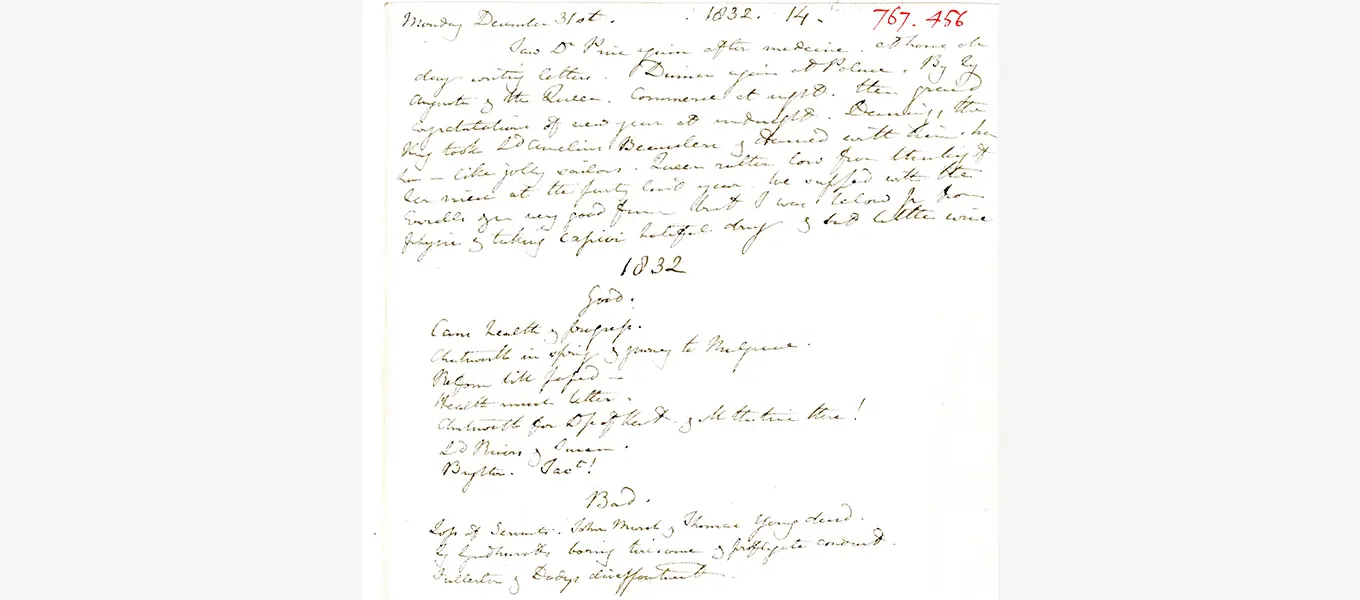 Monday December 31st. 1832. 14. 767. 456
Saw Dr Price again after medicine. at home all
day writing letters. Dinner again at Palace. By Ly
Augusta & the Queen. Commerce at night. then grand
congratulations of new year at midnight. Dancing, the
King took Ld Amelius Beauclerc & danced with him,
him — like jolly sailors. Queen rather low from thinking of
her niece at the party last year. We supped with the
Errolls & in very good fun but I was below par from
physic & taking capivi hateful drug & had little wine
1832
Good.
Cam health & progress.
Chatsworth in spring & journey to Mulgrave.
Reform bill passed —
Health much better.
Chatsworth for Dss of Kent. & M the time there!
Ld Rivers & Susan.
Brighton. Jact!
Bad.
Loss of Servants. John Marsh & Thomas Young dead.
Ly Lyndhurst's boring tiresome & profligate conduct.
Fullerton & Dodys disappointment.